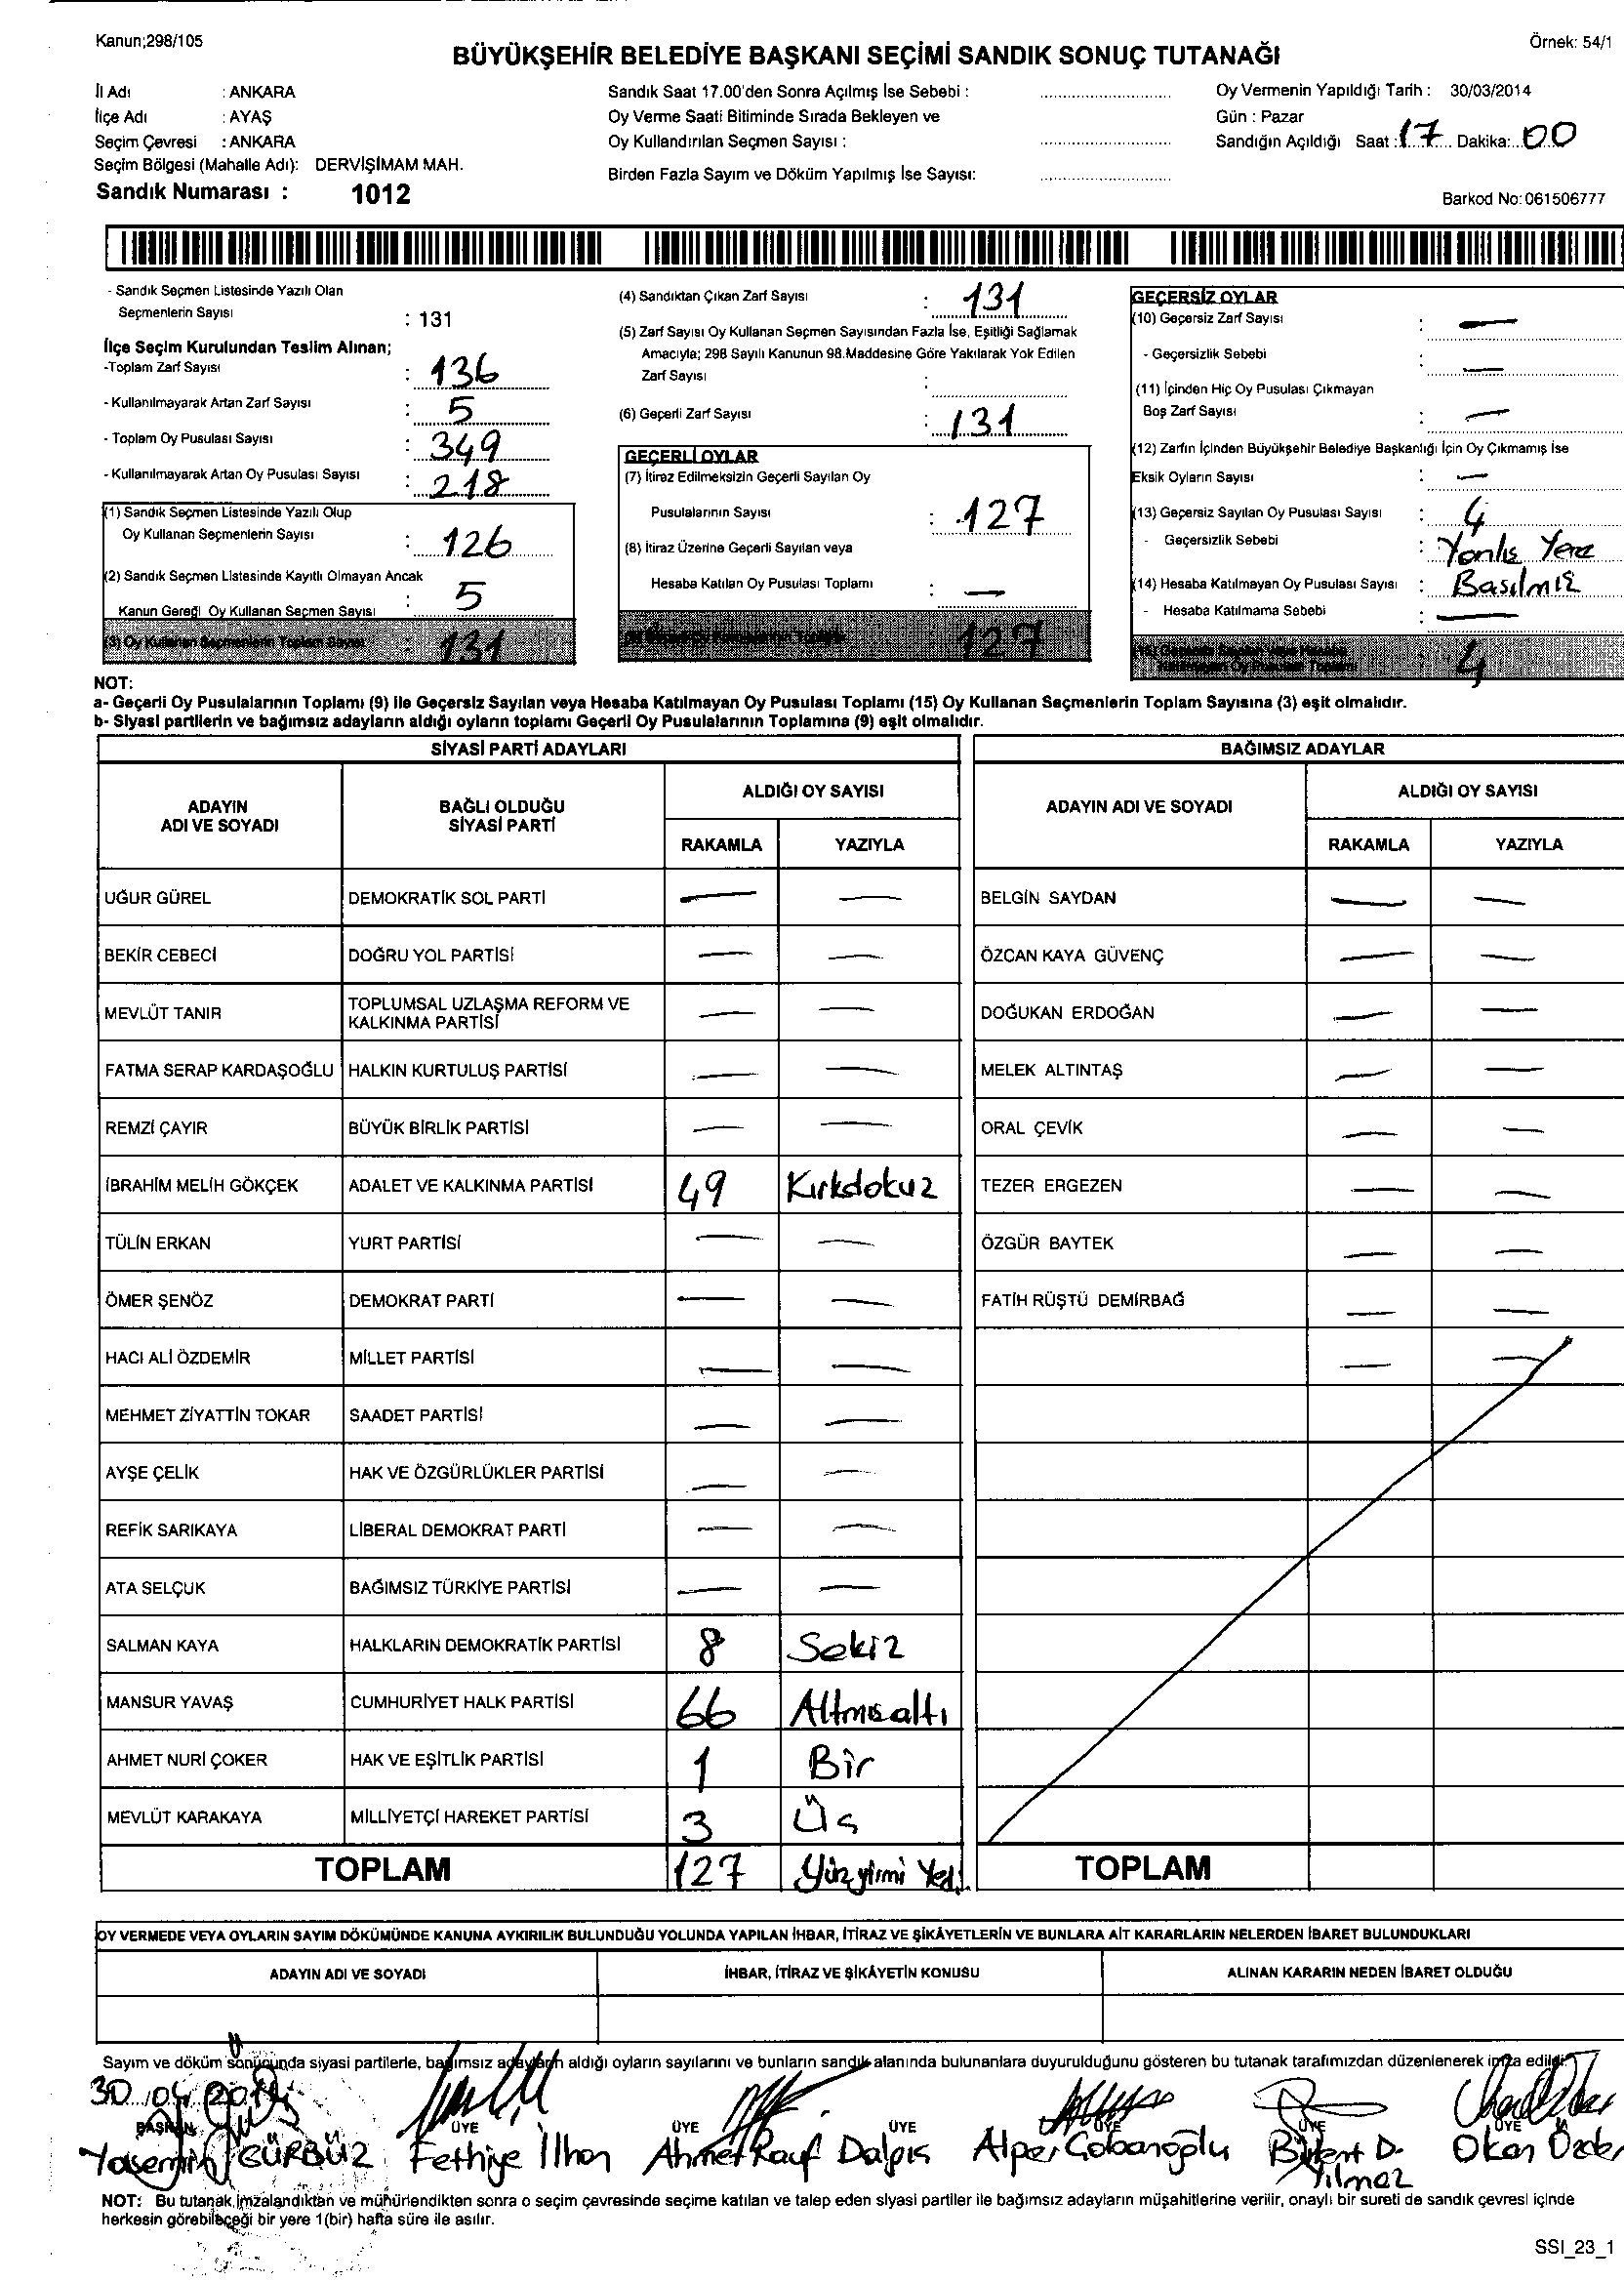 Kanun;298/105
Örnek: 54/1
BÜYÜKŞEHİR BELEDİYE BAŞKANI SEÇİMİ SANDIK SONUÇ TUTANAĞI
İl Adı : ANKARA
İlçe Adı : AYAŞ
Seçim Çevresi : ANKARA
Seçim Bölgesi (Mahalle Adı): DERVİŞİMAM MAH.
Sandık Numarası : 1012
Sandık Saat 17.00'den Sonra Açılmış İse Sebebi :
Oy Verme Saati Bitiminde Sırada Bekleyen ve
Oy Kullandırılan Seçmen Sayısı :
Birden Fazla Sayım ve Döküm Yapılmış İse Sayısı:
Oy Vermenin Yapıldığı Tarih : 30/03/2014
Gün : Pazar
Sandığın Açıldığı Saat : 17 Dakika: 00
Barkod No:061506777
- Sandık Seçmen Listesinde Yazılı Olan
Seçmenlerin Sayısı : 131
İlçe Seçim Kurulundan Teslim Alınan;
-Toplam Zarf Sayısı : 136
- Kullanılmayarak Artan Zarf Sayısı : 5
- Toplam Oy Pusulası Sayısı : 349
- Kullanılmayarak Artan Oy Pusulası Sayısı : 218
(1) Sandık Seçmen Listesinde Yazılı Olup
Oy Kullanan Seçmenlerin Sayısı : 126
(2) Sandık Seçmen Listesinde Kayıtlı Olmayan Ancak
Kanun Gereği Oy Kullanan Seçmen Sayısı : 5
(3) Oy Kullanan Seçmenlerin Toplam Sayısı : 131
(4) Sandıktan Çıkan Zarf Sayısı : 131
(5) Zarf Sayısı Oy Kullanan Seçmen Sayısından Fazla İse, Eşitliği Sağlamak
Amacıyla; 298 Sayılı Kanunun 98.Maddesine Göre Yakılarak Yok Edilen
Zarf Sayısı :
(6) Geçerli Zarf Sayısı : 131
GEÇERLİ OYLAR
(7) İtiraz Edilmeksizin Geçerli Sayılan Oy
Pusulalarının Sayısı : 127
(8) İtiraz Üzerine Geçerli Sayılan veya
Hesaba Katılan Oy Pusulası Toplamı : —
127
GEÇERSİZ OYLAR
(10) Geçersiz Zarf Sayısı : —
- Geçersizlik Sebebi : —
(11) İçinden Hiç Oy Pusulası Çıkmayan
Boş Zarf Sayısı : —
(12) Zarfın İçinden Büyükşehir Belediye Başkanlığı İçin Oy Çıkmamış İse
Eksik Oyların Sayısı : —
(13) Geçersiz Sayılan Oy Pusulası Sayısı : 4
- Geçersizlik Sebebi : Yanlış Yere
(14) Hesaba Katılmayan Oy Pusulası Sayısı : Basılmış
- Hesaba Katılmama Sebebi : —
4
NOT:
a- Geçerli Oy Pusulalarının Toplamı (9) ile Geçersiz Sayılan veya Hesaba Katılmayan Oy Pusulası Toplamı (15) Oy Kullanan Seçmenlerin Toplam Sayısına (3) eşit olmalıdır.
b- Siyasi partilerin ve bağımsız adayların aldığı oyların toplamı Geçerli Oy Pusulalarının Toplamına (9) eşit olmalıdır.
SİYASİ PARTİ ADAYLARI
ADAYIN ADI VE SOYADI
BAĞLI OLDUĞU SİYASİ PARTİ
ALDIĞI OY SAYISI
RAKAMLA YAZIYLA
UĞUR GÜREL DEMOKRATİK SOL PARTİ — —
BEKİR CEBECİ DOĞRU YOL PARTİSİ — —
MEVLÜT TANIR TOPLUMSAL UZLAŞMA REFORM VE KALKINMA PARTİSİ — —
FATMA SERAP KARDAŞOĞLU HALKIN KURTULUŞ PARTİSİ — —
REMZİ ÇAYIR BÜYÜK BİRLİK PARTİSİ — —
İBRAHİM MELİH GÖKÇEK ADALET VE KALKINMA PARTİSİ 49 Kırkdokuz
TÜLİN ERKAN YURT PARTİSİ — —
ÖMER ŞENÖZ DEMOKRAT PARTİ — —
HACI ALİ ÖZDEMİR MİLLET PARTİSİ — —
MEHMET ZİYATTİN TOKAR SAADET PARTİSİ — —
AYŞE ÇELİK HAK VE ÖZGÜRLÜKLER PARTİSİ — —
REFİK SARIKAYA LİBERAL DEMOKRAT PARTİ — —
ATA SELÇUK BAĞIMSIZ TÜRKİYE PARTİSİ — —
SALMAN KAYA HALKLARIN DEMOKRATİK PARTİSİ 8 Sekiz
MANSUR YAVAŞ CUMHURİYET HALK PARTİSİ 66 Altmışaltı
AHMET NURİ ÇOKER HAK VE EŞİTLİK PARTİSİ 1 Bir
MEVLÜT KARAKAYA MİLLİYETÇİ HAREKET PARTİSİ 3 Üç
TOPLAM 127 Yüzyirmi Yedi
BAĞIMSIZ ADAYLAR
ADAYIN ADI VE SOYADI
ALDIĞI OY SAYISI
RAKAMLA YAZIYLA
BELGİN SAYDAN — —
ÖZCAN KAYA GÜVENÇ — —
DOĞUKAN ERDOĞAN — —
MELEK ALTINTAŞ — —
ORAL ÇEVİK — —
TEZER ERGEZEN — —
ÖZGÜR BAYTEK — —
FATİH RÜŞTÜ DEMİRBAĞ — —
— —
TOPLAM
OY VERMEDE VEYA OYLARIN SAYIM DÖKÜMÜNDE KANUNA AYKIRILIK BULUNDUĞU YOLUNDA YAPILAN İHBAR, İTİRAZ VE ŞİKÂYETLERİN VE BUNLARA AİT KARARLARIN NELERDEN İBARET BULUNDUKLARI
ADAYIN ADI VE SOYADI İHBAR, İTİRAZ VE ŞİKÂYETİN KONUSU ALINAN KARARIN NEDEN İBARET OLDUĞU
Sayım ve döküm sonucunda siyasi partilerle, bağımsız adayların aldığı oyların sayılarını ve bunların sandık alanında bulunanlara duyurulduğunu gösteren bu tutanak tarafımızdan düzenlenerek imza edildi.
30/04/2014
BAŞKAN ÜYE ÜYE ÜYE ÜYE ÜYE ÜYE
Yasemin GÜRBÜZ Fethiye İlhan Ahmet Rauf Dalpıs Alper Çobanoğlu Bülent D. Yılmaz Okan
NOT: Bu tutanak,imzalandıktan ve mühürlendikten sonra o seçim çevresinde seçime katılan ve talep eden siyasi partiler ile bağımsız adayların müşahitlerine verilir, onaylı bir sureti de sandık çevresi içinde
herkesin görebileceği bir yere 1(bir) hafta süre ile asılır.
SSI_23_1